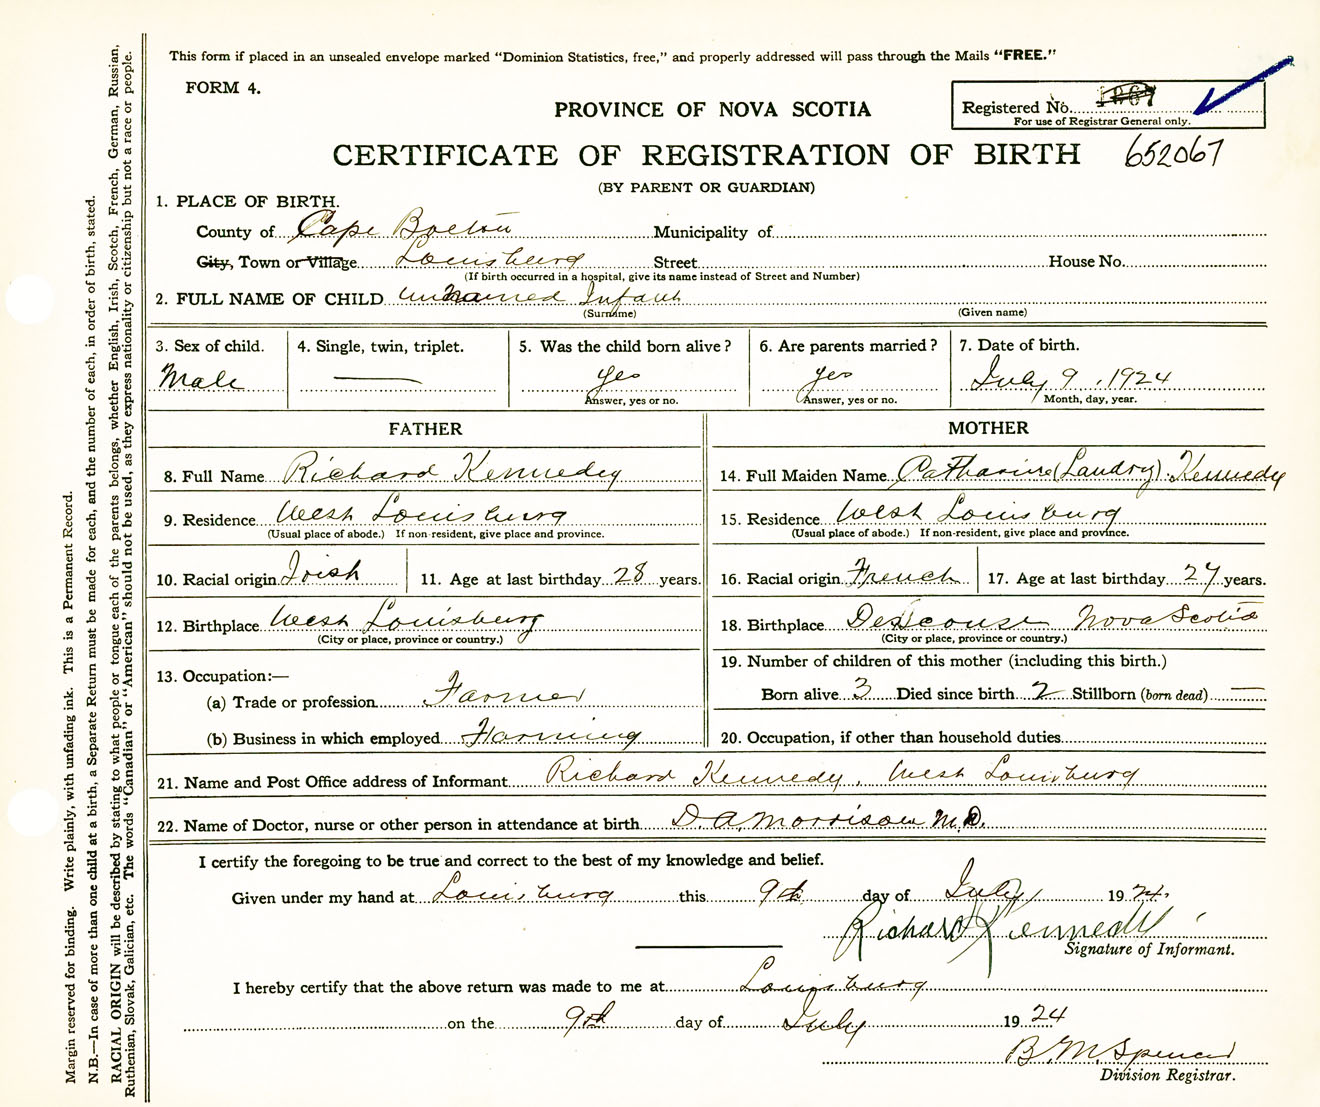 This form if placed in an unsealed envelope marked “Dominion Statistics, free,” and properly addressed will pass through the Mails “FREE.”
FORM 4.
PROVINCE OF NOVA SCOTIA
Registered No. 1867
For use of Registrar General only.
CERTIFICATE OF REGISTRATION OF BIRTH 652067
(BY PARENT OR GUARDIAN)
1. PLACE OF BIRTH.
County of Cape Breton Municipality of
City, Town or Village Louisburg Street House No.
(If birth occurred in a hospital, give its name instead of Street and Number)
2. FULL NAME OF CHILD Unnamed Infant
(Surname) (Given name)
3. Sex of child. 4. Single, twin, triplet. 5. Was the child born alive? 6. Are parents married? 7. Date of birth.
Male — yes yes July 9, 1924
Answer, yes or no. Answer, yes or no. Month, day, year.
FATHER MOTHER
8. Full Name Richard Kennedy 14. Full Maiden Name Catharine (Landry) Kennedy
9. Residence West Louisburg 15. Residence West Louisburg
(Usual place of abode.) If non-resident, give place and province. (Usual place of abode.) If non-resident, give place and province.
10. Racial origin Irish 11. Age at last birthday 28 years. 16. Racial origin French 17. Age at last birthday 27 years.
12. Birthplace West Louisburg 18. Birthplace Descouse Nova Scotia
(City or place, province or country.) (City or place, province or country.)
13. Occupation:— 19. Number of children of this mother (including this birth.)
(a) Trade or profession Farmer Born alive 3 Died since birth 2 Stillborn (born dead) —
(b) Business in which employed Farming 20. Occupation, if other than household duties
21. Name and Post Office address of Informant Richard Kennedy, West Louisburg
22. Name of Doctor, nurse or other person in attendance at birth D. A. Morrison M.D.
I certify the foregoing to be true and correct to the best of my knowledge and belief.
Given under my hand at Louisburg this 9th day of July 1924.
Richard Kennedy
Signature of Informant.
I hereby certify that the above return was made to me at Louisburg
on the 9th day of July 1924
B. M. Spencer
Division Registrar.
Margin reserved for binding. Write plainly, with unfading ink. This is a Permanent Record.
N.B.—In case of more than one child at a birth, a Separate Return must be made for each, and the number of each, in order of birth, stated.
RACIAL ORIGIN will be described by stating to what people or tongue each of the parents belongs, whether English, Irish, Scotch, French, German, Russian,
Ruthenian, Slovak, Galician, etc. The words “Canadian” or “American” should not be used, as they express nationality or citizenship but not a race or people.